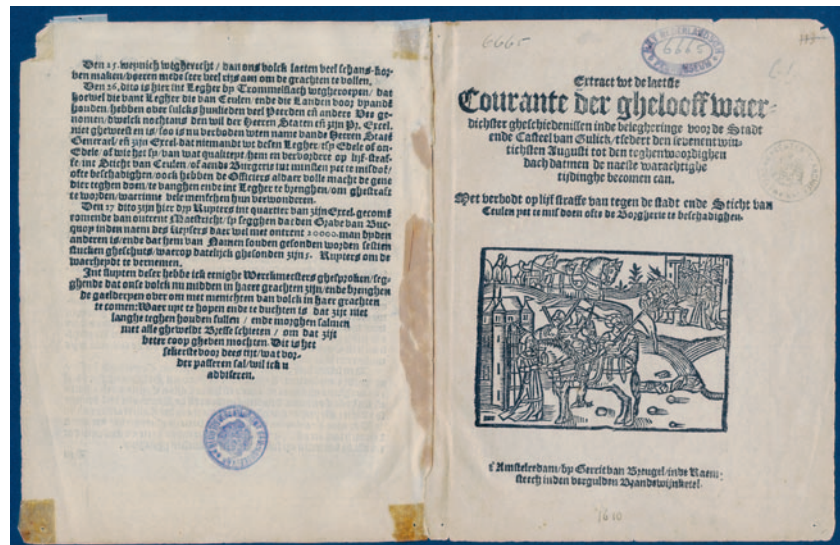 Den 25. weynich wtgherecht / dan ons volck laeten veel schans-kor-
ven maken / voeren mede seer veel rijs aan om de grachten te vollen.
Den 26. dito is hier int Legher bp Trommelslach wtgheroepen / dat
hoewel die vant Legher die van Ceulen / ende die Landen voor vpandt
houden / hebben over sulcks hondeden veel Peerden en andere Bee ge-
nomen / dwelck nochtans den wil der Heeren Staten en zijn Pr. Excel.
niet gheweest en is / soo is nu verboden wten name vande Heeren Staté
Generael / en zijn Excel. dat niemandt wt desen Legher / tsp Edele of on-
Edele / of wie het sp / van wat qualiteyt / hem en vervordere op lijf-straf-
fe int Sticht van Ceulen / of aende Burgerie iut minsten pet te misdoē /
ofte beschadighen / oock hebben de Officiers aldaer volle macht de gene
dier teghen doen / te vanghen ende int Legher te brenghen / om ghestraft
te worden / waerinne vele menschen hun verwonderen.
Den 27 dito zijn hier dyp Ruyters int quartier van zijn Excel. gecomē
komende van ontrent Maestricht / sp segghen dat den Grave van Buc-
quop inden naem des Keysers daer wel met ontrent 20000. man byden
anderen is / ende dat hem van Namen souden gesonden worden sestien
stucken gheschuts / waerop datelijck ghesonden zijn 5. Ruyters om de
waerheydt te vernemen.
Int sluyten deser hebbe ick eenighe Werckmeesters ghesproken / seg-
ghende dat onse volck nu midden in haere grachten zijn / ende brenghen
de gaelderpen over om met menichten van volck in haer grachten
te comen: Waer wpt te hopen ende te duchten is dat zijt niet
langhe teghen houden sullen / ende morghen salmen
met alle ghewelt Bresse schieten / om dat zijt
beter coop gheven mochten. Dit is het
sekerste voor dees tijt / wat vor-
der passeren sal / wil ick u
adviseren.
6665
6665
Extract wt de laetste
Courante der gheloeff waer-
dichster gheschiedenissen inde belegheringe voor de Stadt
ende Casteel van Gulich / tsedert den sevenent win-
tichsten Augusti tot den teghenwoordighen
dach datmen de naeste warachtighe
tijdinghe becomen can.
Met verbodt op lijf straffe van tegen de stadt ende Sticht van
Ceulen pet te mis doen ofte de Borgherie te beschadighen.
t'Amstelerdam / bp Gerrit van Breugel / inde Raem-
steech inden vergulden Brandewijnketel.
1610